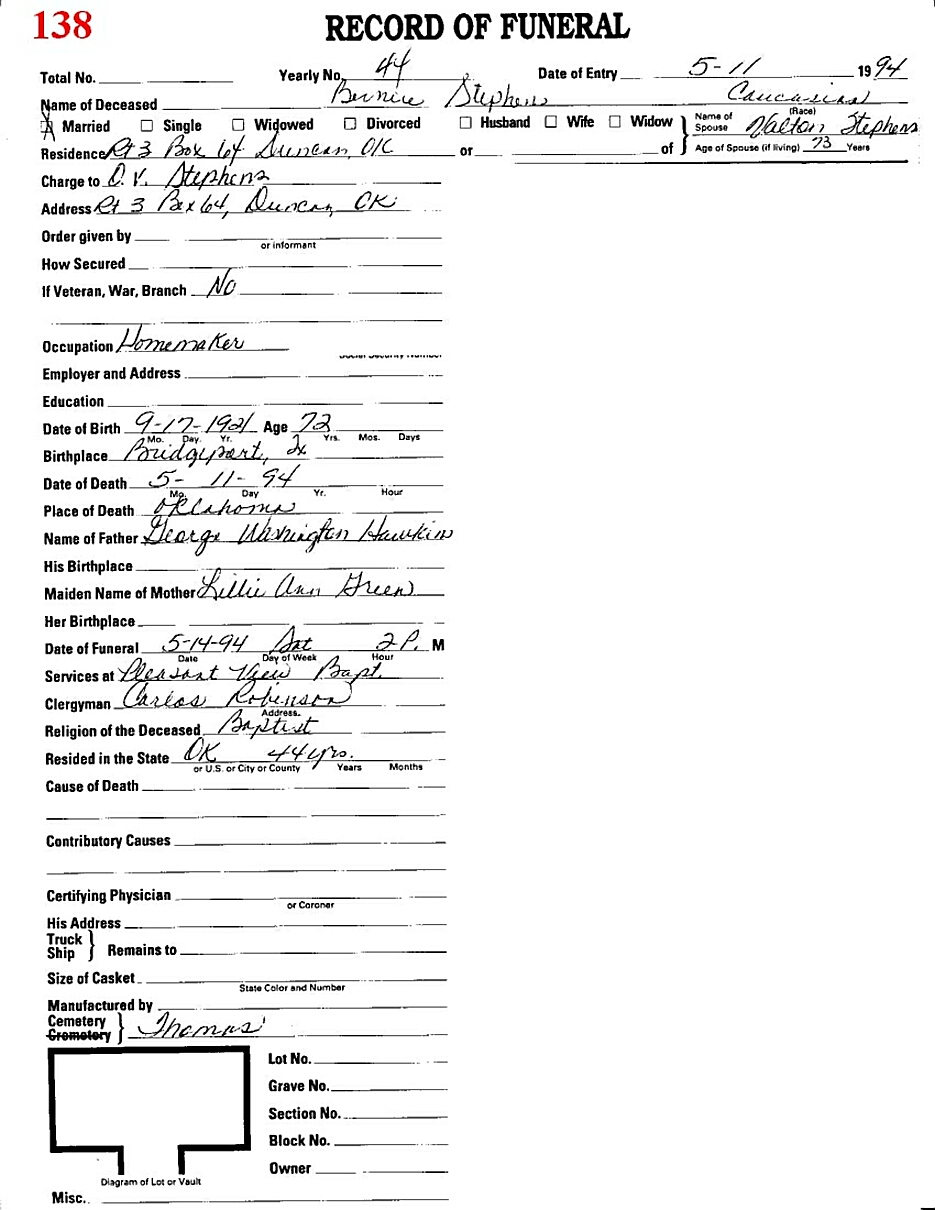 138
RECORD OF FUNERAL
Total No. Yearly No. 44 Date of Entry 5-11 1994
Name of Deceased Bernice Stephens Caucasian
(Race)
X Married ☐ Single ☐ Widowed ☐ Divorced ☐ Husband ☐ Wife ☐ Widow } Name of Spouse Walton Stephens
Residence Rt 3 Box 64 Duncan, OK or of Age of Spouse (if living) 73 Years
Charge to O. V. Stephens
Address Rt 3 Box 64, Duncan, OK
Order given by
or informant
How Secured
If Veteran, War, Branch No
Occupation Homemaker
Social Security Number
Employer and Address
Education
Date of Birth 9-17-1921 Age 72
Mo. Day. Yr. Yrs. Mos. Days
Birthplace Bridgeport, Tx
Date of Death 5- 11- 94
Mo. Day Yr. Hour
Place of Death Oklahoma
Name of Father George Washington Hawkins
His Birthplace
Maiden Name of Mother Lillie Ann Green
Her Birthplace
Date of Funeral 5-14-94 Sat 2 P. M
Date Day of Week Hour
Services at Pleasant View Bapt.
Clergyman Carlos Robinson
Address.
Religion of the Deceased Baptist
Resided in the State OK 44 yrs.
or U.S. or City or County Years Months
Cause of Death
Contributory Causes
Certifying Physician
or Coroner
His Address
Truck
Ship } Remains to
Size of Casket
State Color and Number
Manufactured by
Cemetery
Crematory } Thomas
Lot No.
Grave No.
Section No.
Block No.
Owner
Diagram of Lot or Vault
Misc.